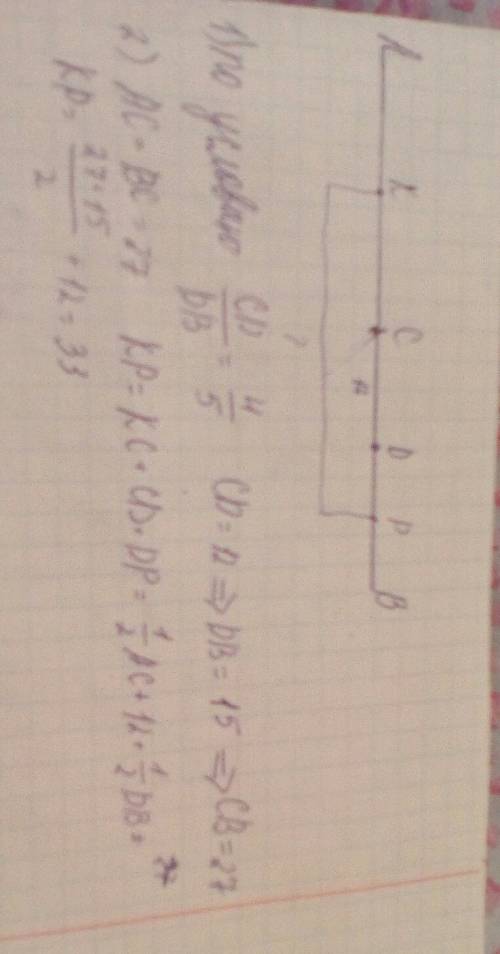 A K C D P B
12
?
1) по условию CD/DB = 4/5 CD = 12 ⇒ DB = 15 ⇒ CB = 27
2) AC = BC = 27 KP = KC + CD + DP = 1/2 AC + 12 + 1/2 DB =
KP = 27+15/2 + 12 = 33